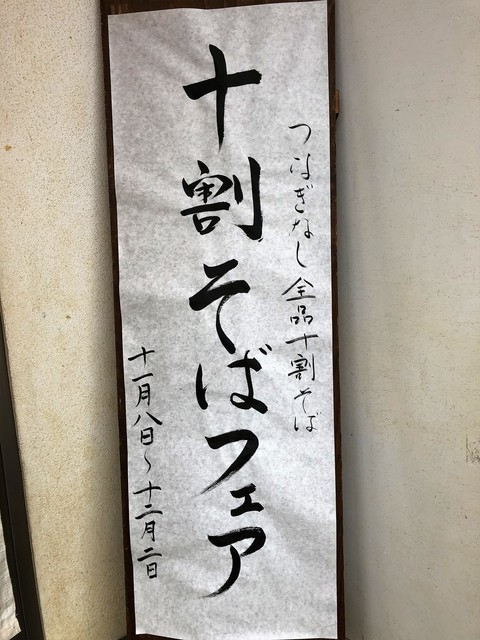 つなぎなし 全品十割そば
十割そばフェア
十一月八日〜十二月二日